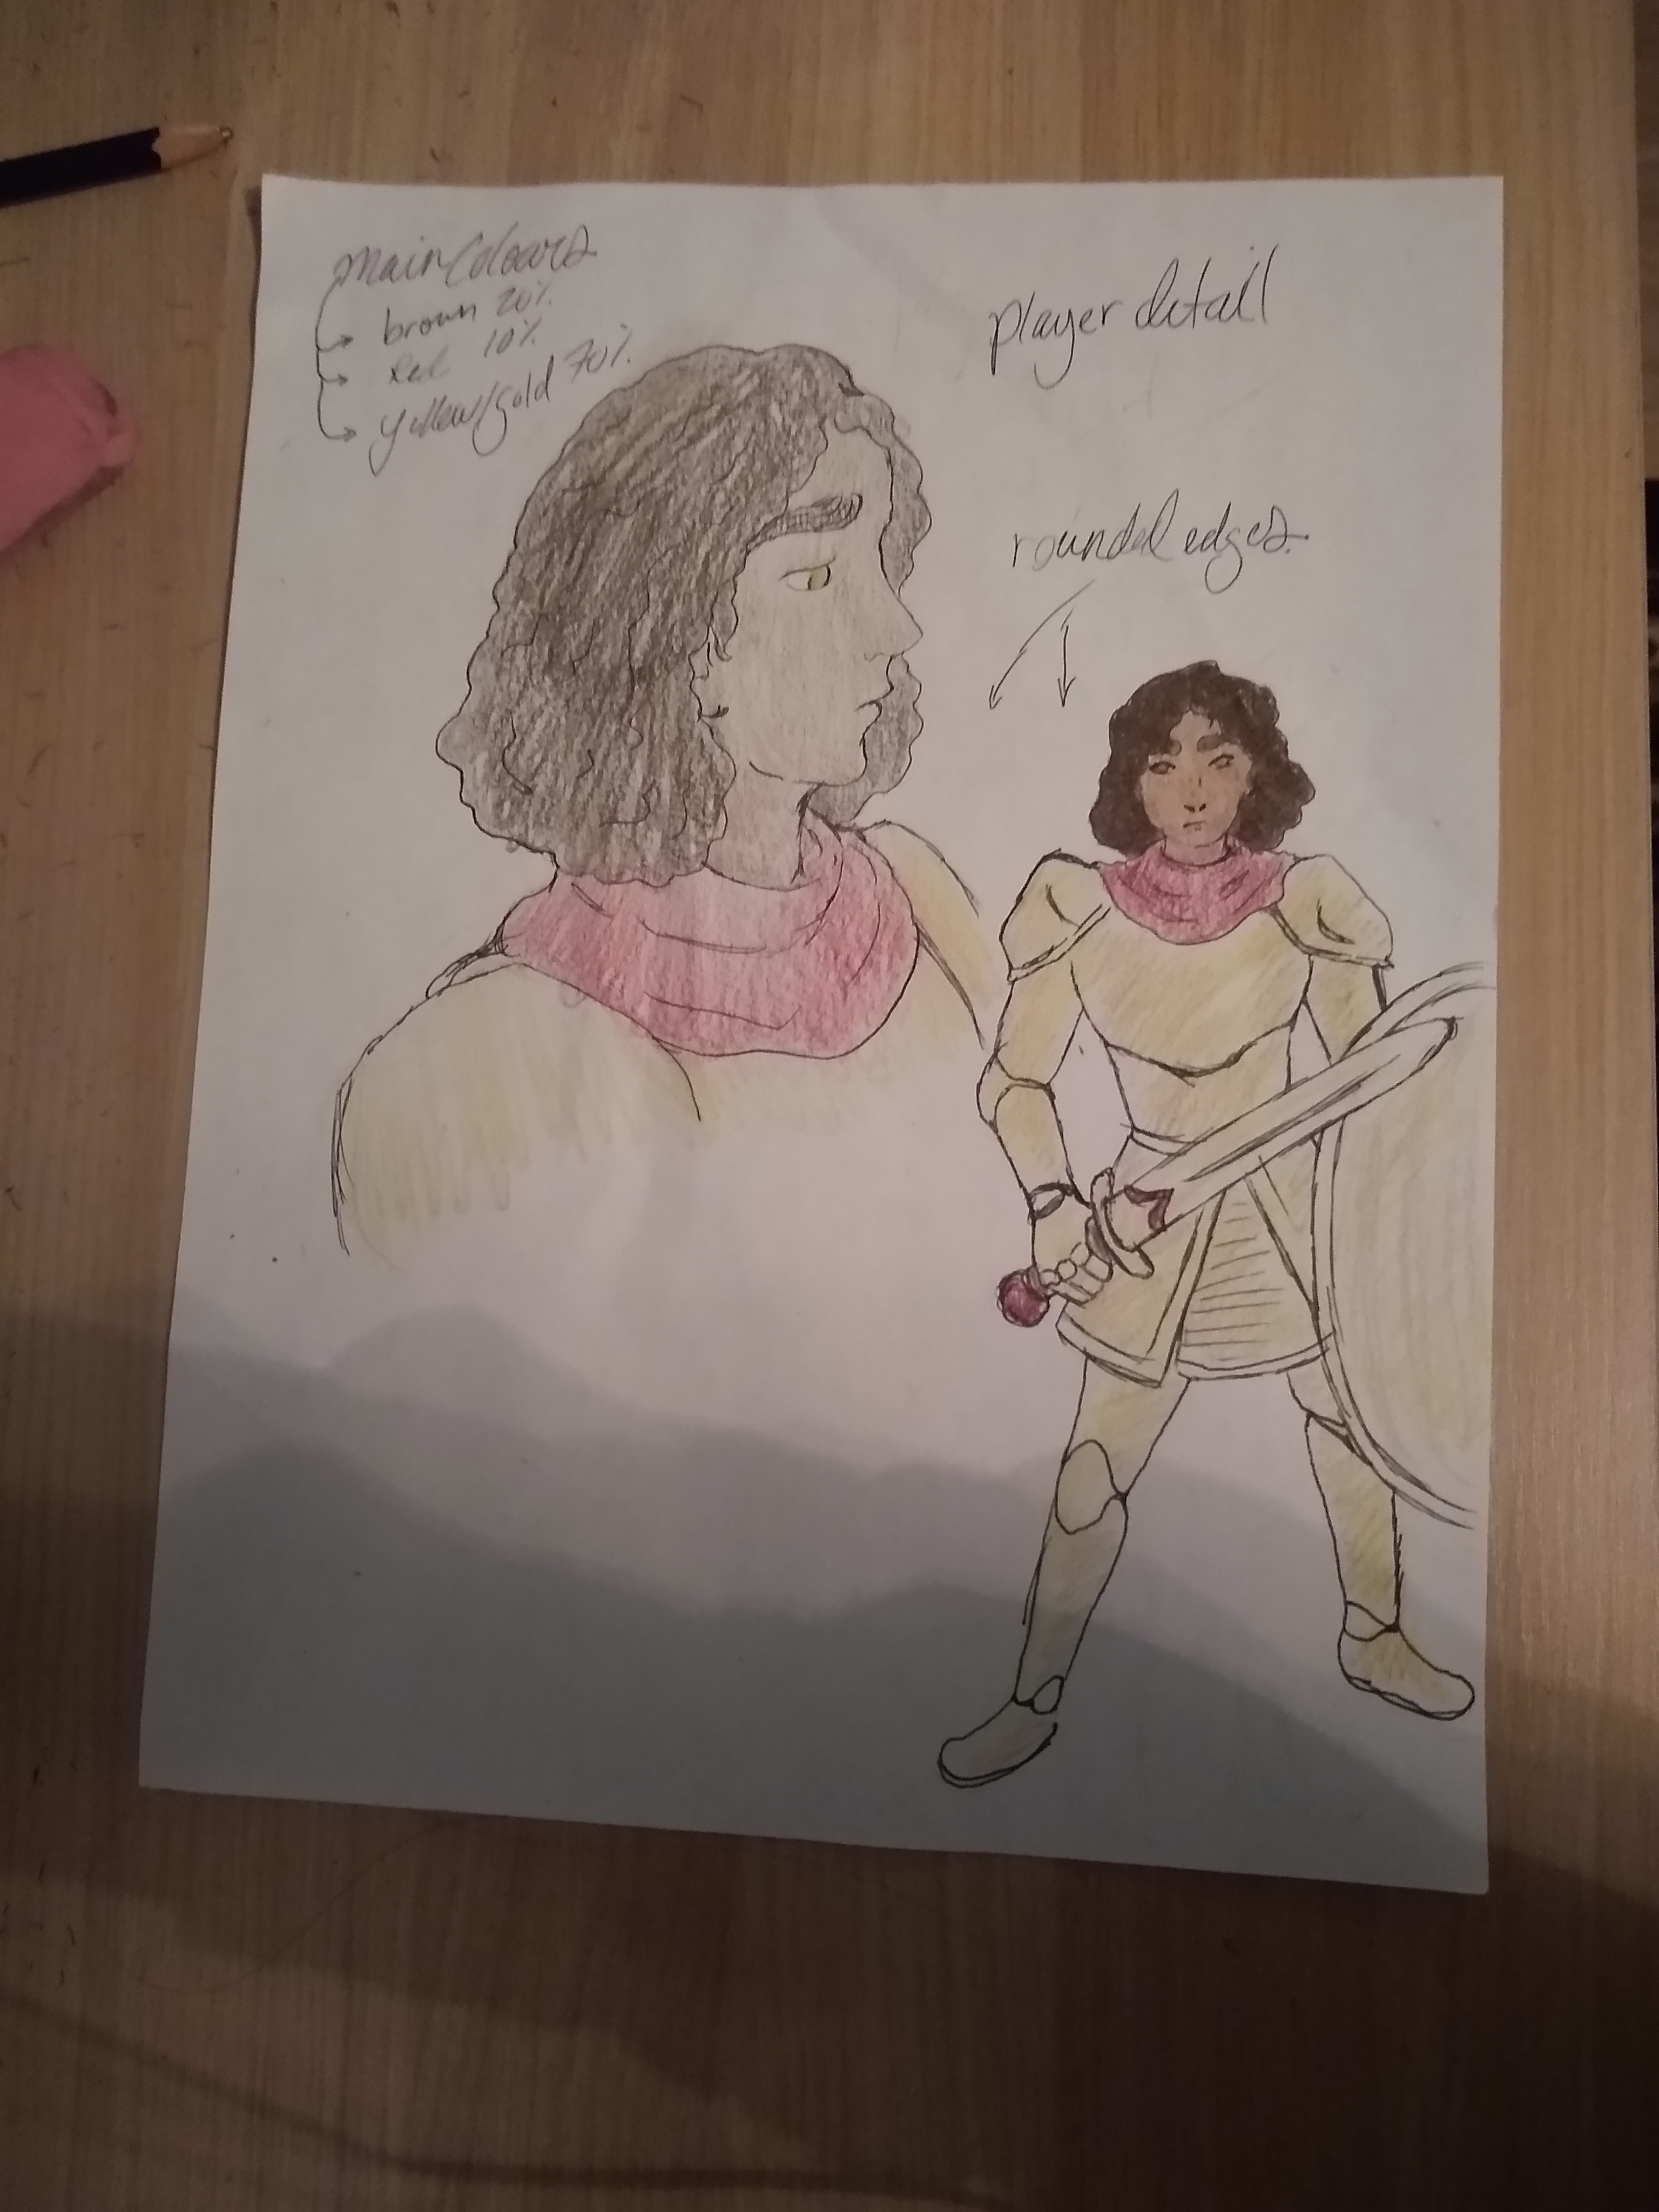 Main Colours
brown 20%
Red 10%
yellow/gold 70%
player detail
rounded edges